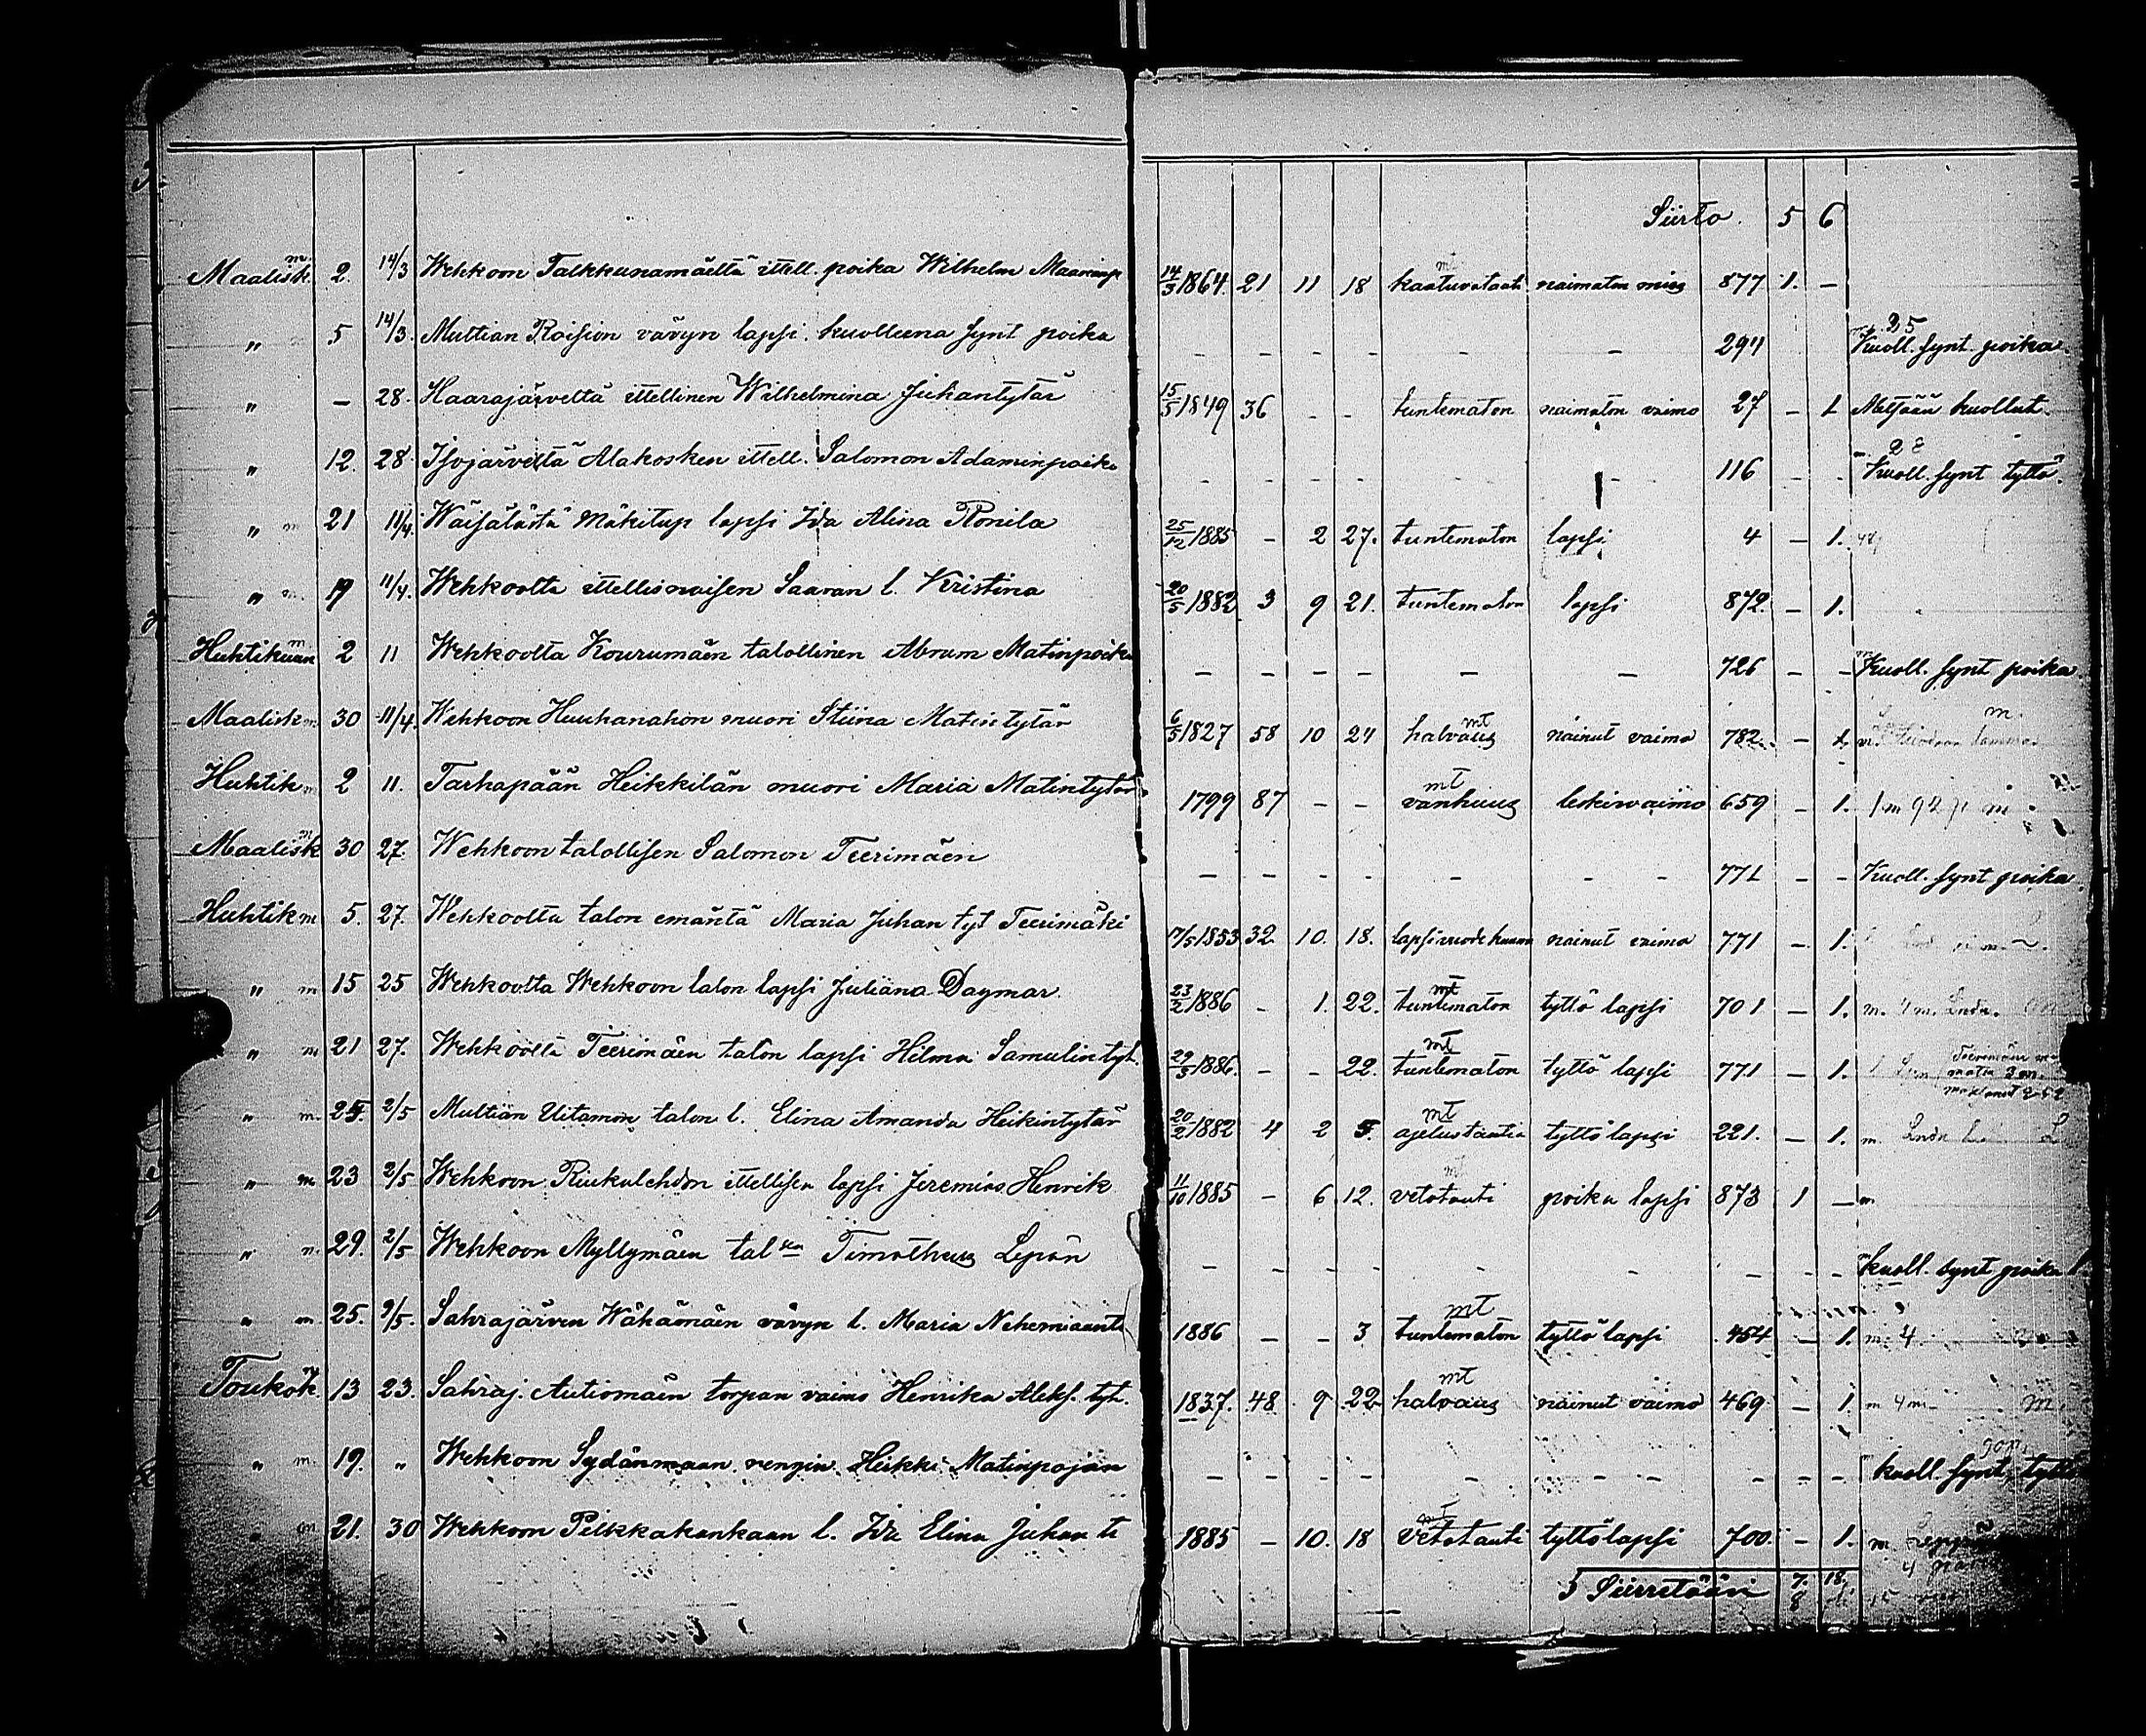 Siirto. 5 6
Maalisk. m 2. 14/3 Wehkoon Talkkunamäeltä ittell. poika Wilhelm 14/3 1864. 21 11 18 kaatuvatauti naimaton mies 877 1. –
" 5 14/3. Multian Roision vävyn lapsi. kuolleena synt poika – – – – – – 294 Kuoll. synt. poika.
" – 28. Haarajärveltä ittellinen Wilhelmina Juhantytär 15/5 1849 36 – – tuntematon naimaton vaimo 27 – 1 Metsään kuollut.
" 12. 28 Isojärveltä Alakosken ittell. Salomon Adaminpoika – – – – – – 116 – – Kuoll. synt tyttö.
" m 21 11/4. Wäisälästä Mäkitup lapsi Ida Alina Ronila 25/12 1885 – 2 27. tuntematon lapsi 4 – 1.
" m. 19 11/4. Wehkoolta ittellisnaisen Saaran l. Kristina 20/5 1882 3 9 21. tuntematon lapsi 872. – 1.
Huhtikuun m 2 11 Wehkoolta Kourumäen talollinen Abram Matinpoika – – – – – – 726 – – Kuoll. synt poika
Maalisk m. 30 11/4. Wehkoon Huuhanahon muori Stiina Matintytär 6/5 1827 58 10 24 halvaus mt nainut vaimo 782. – 1.
Huhtik m 2 11. Tarhapään Heikkilän muori Maria Matintytär 1799 87 – – vanhuus mt leskivaimo 659 – 1.
Maalisk m 30 27. Wehkoon talollisen Salomon Teerimäen – – – – – – 771 – – Kuoll. synt poika.
Huhtik m 5. 27. Wehkoolta talon emäntä Maria Juhan tyt Teerimäki 17/5 1853 32. 10. 18. lapsivuode kuume nainut vaimo 771 – 1.
" m 15 25 Wehkoolta Wehkoon talon lapsi Juliana Dagmar. 23/2 1886 – 1. 22. tuntematon mt tyttö lapsi 701 – 1.
" m 21 27. Wehkoolta Teerimäen talon lapsi Hilma Samulintyt. 29/3 1886. – – 22. tuntematon mt tyttö lapsi 771 – 1.
" m. 25. 2/5 Multian Uitamon talon l. Elina Amanda Heikintytär 20/2 1882 4 2 5. ajelustautia mt tyttö lapsi 221. – 1. m
" m 23 2/5 Wehkoon Riukulehdon ittellisen lapsi Jeremias Henrik 11/10 1885 – 6 12. vetotauti mt poika lapsi 873 1 – m
" m. 29. 2/5 Wehkoon Myllymäen tal sen Timotheus Lepän – – – – – – – – – Kuoll. synt poika
" m 25. 9/5. Sahrajärven Wähämäen vävyn l. Maria Nehemiaant 1886 – – 3 tuntematon mt tyttö lapsi 454 – 1. m. 4
Toukok. m 13 23. Sahraj. Autiomäen torpan vaimo Henrika Aleks. tyt. 1837. 48 9 22 halvaus mt nainut vaimo 469 – 1.
" m. 19. " Wehkoon Sydänmaan rengin Heikki Matinpojan – – – – – – – – – kuoll. synt. tyttö
" m 21. 30 Wehkoon Pelkkakankaan l. Ida Elina Juhan t. 1885 – 10. 18 Vetotauti mt tyttölapsi 700. – 1.
Siirretään 7. 18.
8